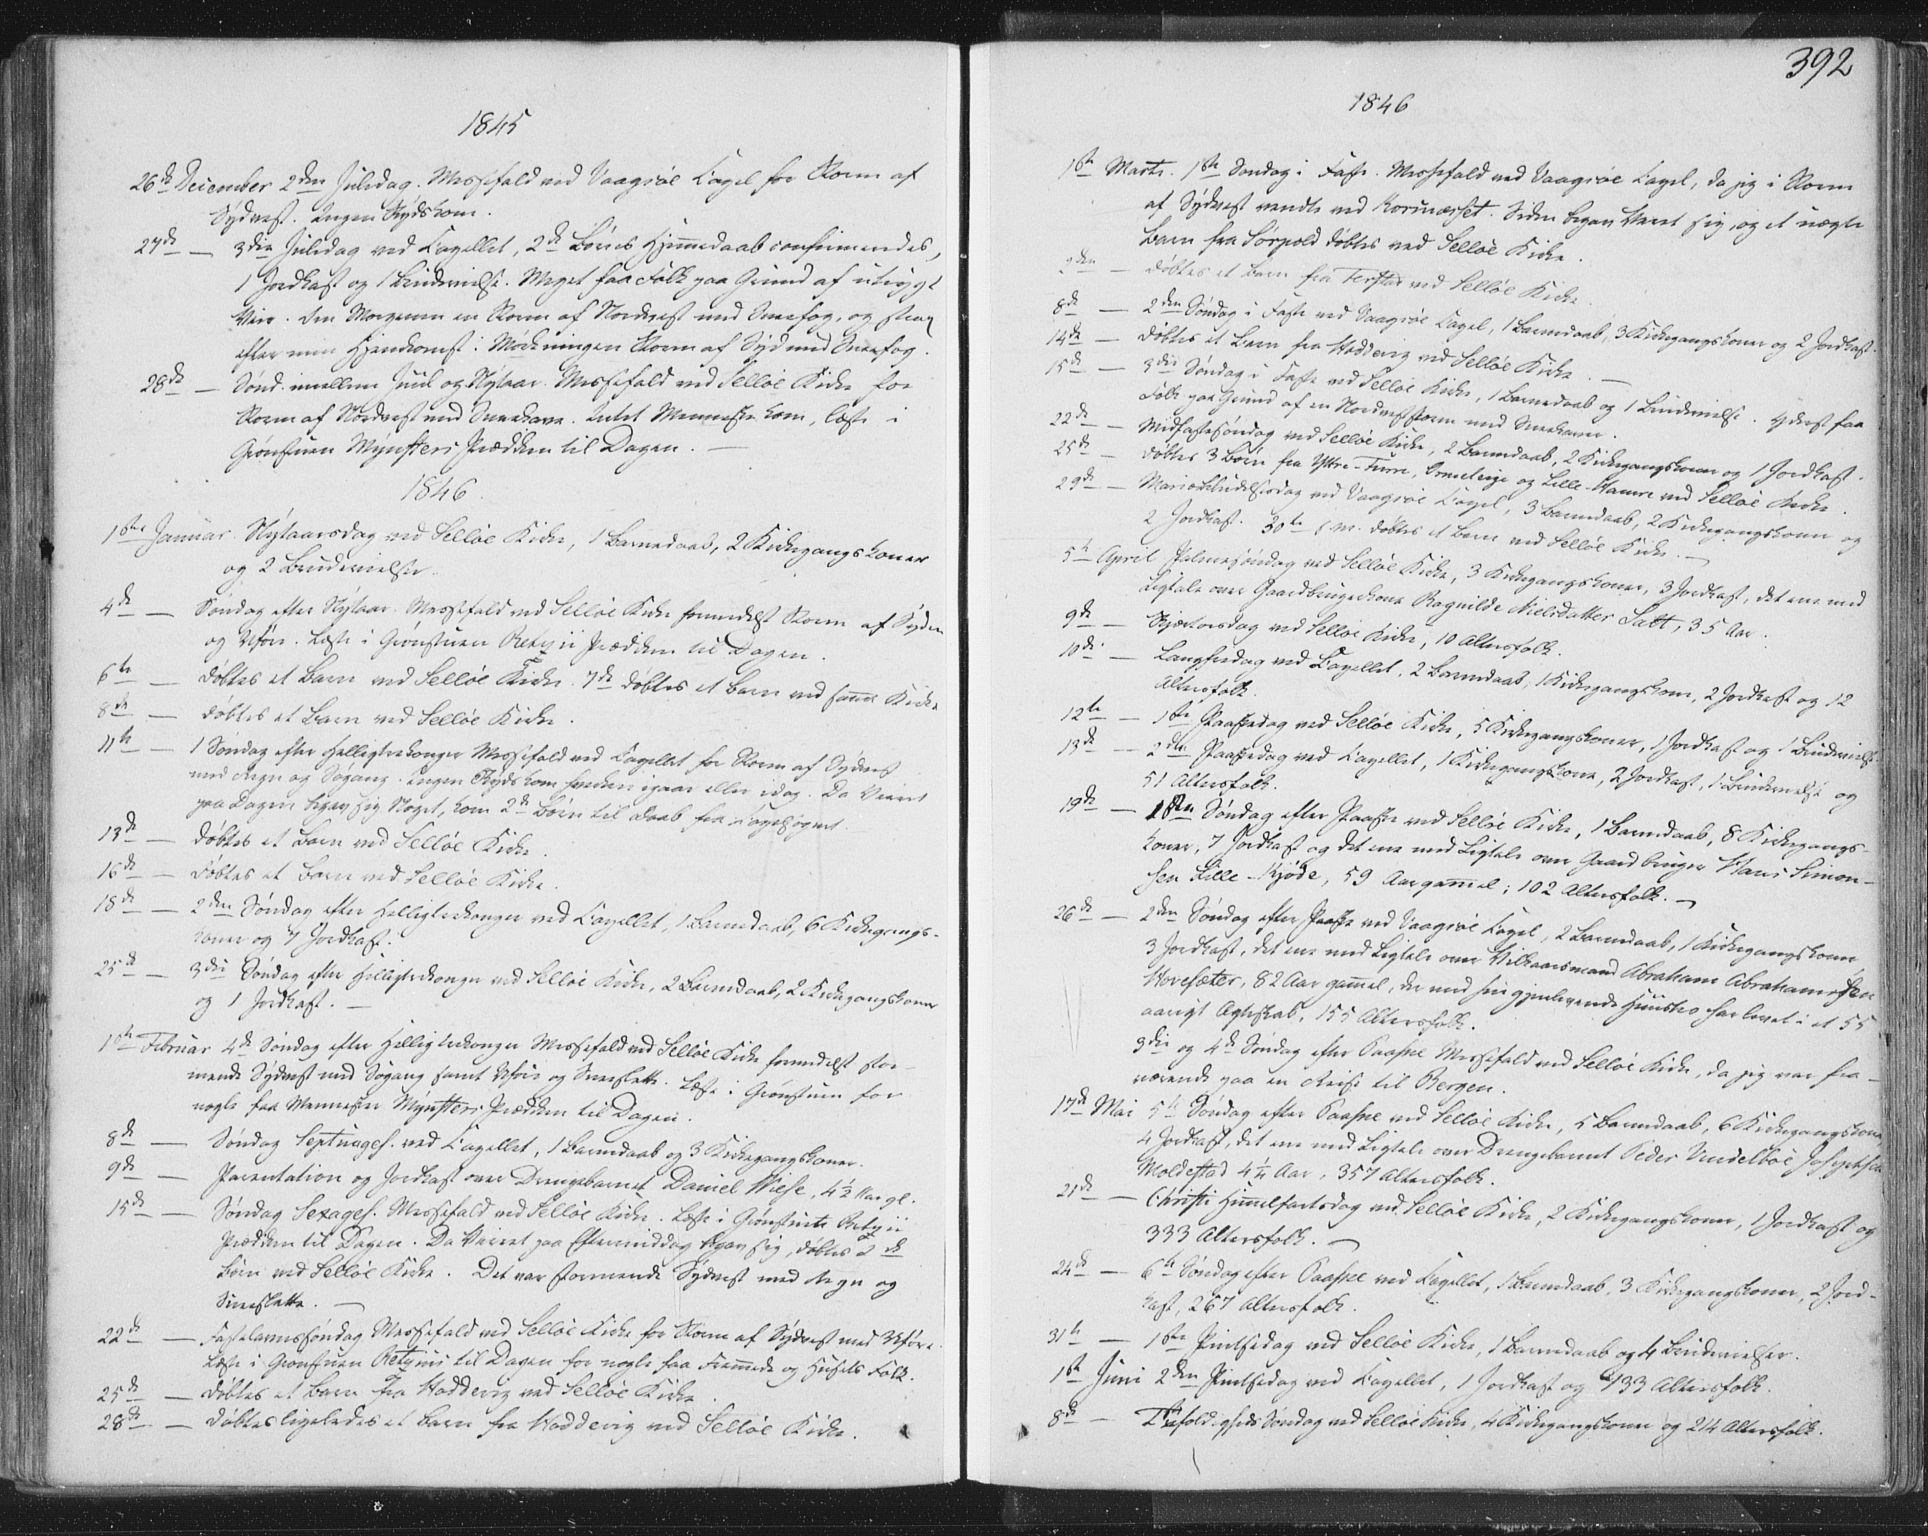 1845
26de December 2den Juledag. Messefald ved Vaagsøe Capel for Storm af
Sydvest. Ingen Skydskom.
27de — 3die Juledag ved Capellet, 2de Børns Hjemmedaab confirmeredes,
1 Jordkast og 1 Brudevielse. Meget faa Folk paa Grund af utrygt
Veir. Om Morgenen en Storm af Nordvest med Sneefog, og strax
efter min Hjemkomst i Mørkningen Storm af Syd med Sneefog.
28de — Sønd. imellem Juul og Nytaar. Messefald ved Selløe Kirke for
Storm af Nordvest med Sneekave. Intet Menneske kom, læste i
Grønstuen Mynsters Prædiken til Dagen. —
1846.
1ste Januar. Nytaarsdag ved Selløe Kirke, 1 Barnedaab, 2 Kirkegangskoner
og 2 Brudevielser.
4de — Søndag efter Nytaar. Messefald ved Selløe Kirke formedelst Storm af Syden
og Uføre. Læste i Grønstuen Prædiken til Dagen.
6te — døbtes et Barn ved Selløe Kirke. 7de døbtes et Barn ved samme Kirke
8de — døbtes et Barn ved Selløe Kirke.
11te — 1 Søndag efter Helligtrekonger Messefald ved Capellet for Storm af Sydvest
med Regn og Søgang. Ingen Skyds kom hverken igaar eller idag. Da Veiret
paa Dagen begav sig Noget, kom 2de Børn til Daab fra Capelsognet.
13de — døbtes et Barn ved Selløe Kirke.
16de — døbtes et Barn ved Selløe Kirke.
18de — 2den Søndag efter Helligtrekonger ved Capellet, 1 Barnedaab, 6 Kirkegangs-
koner og 7 Jordkast.
25de — 3die Søndag efter Helligtrekonger ved Selløe Kirke, 2 Barnedaab, 2 Kirkegangskoner
og 1 Jordkast. —
1ste Februar 4de Søndag efter Helligtrekonger Messefald ved Selløe Kirke formedelst stor-
mende Sydvest med Søgang samt Uføre og Sneeslette. Læste i Grønstuen for
nogle faa Mennesker Mynsters Prædiken til Dagen.
8de — Søndag Septuages. ved Capellet, 1 Barnedaab og 3 Kirkegangskoner.
9de — Parentation og Jordkast over Drengebarnet Daniel Wiese, 4½ Aar gl.
15de — Søndag Sexages. Messefald ved Selløe Kirke. Læste i Grønstuen
Prædiken til Dagen. Da Veiret paa Eftermiddag begav sig, døbtes 2de
Børn ved Selløe Kirke. Det var stormende Sydvest med Regn og
Sneeslette. —
22de — Fastelavnssøndag Messefald ved Selløe Kirke for Storm af Sydvest med Uføre.
Læste i Grønstuen til Dagen for nogle faa Fremmede og Husets Folk.
25de — døbtes et Barn fra Hoddevig ved Selløe Kirke.
28de — døbtes ligeledes et Barn fra Hoddevig ved Selløe Kirke.
392
1846
1ste Marts. 1ste Søndag i Faste. Messefald ved Vaagsøe Capel, da jeg i Storm
af Sydvest vendte ved Kornæsset. Siden begav Veiret sig, og et uægte
Barn fra Sørpold døbtes ved Selløe Kirke.
2den — døbtes et Barn fra ved Selløe Kirke.
8de — 2den Søndag i Faste ved Vaagsøe Capel, 1 Barnedaab, 3 Kirkegangskoner og 2 Jordkast.
14de — døbtes et Barn fra Hoddevig ved Selløe Kirke.
15de — 3die Søndag i Faste ved Selløe Kirke, 1 Barnedaab og 1 Brudevielse. Yderst faa
Folk paa Grund af en Nordveststorm med Sneekaver.
22de — Midfastesøndag ved Selløe Kirke, 2 Barnedaab, 2 Kirkegangskoner og 1 Jordkast.
25de — døbtes 3 Børn fra Yttre-Furre, og Lille-Hamre ved Selløe Kirke.
29de — Mariæ Bebudelsesdag ved Vaagsøe Capel, 3 Barnedaab, 2 Kirkegangskoner og
2 Jordkast. 30te s. M. døbtes et Barn ved Selløe Kirke. —
5te April Palmesøndag ved Selløe Kirke, 3 Kirkegangskoner, 3 Jordkast, det ene med
Ligtale over Gaardbrugerkone Ragnilde Nielsdatter Satt, 35 Aar.
9de — Skjærtorsdag ved Selløe Kirke, 10 Altersfolk.
10de — Langfredag ved Capellet, 2 Barnedaab, 1 Kirkegangskone, 2 Jordkast og 12
Altersfolk.
12te — 1ste Paaskedag ved Selløe Kirke, 5 Kirkegangskoner, 1 Jordkast og 1 Brudevielse.
13de — 2den Paaskedag ved Capellet, 1 Kirkegangskone, 2 Jordkast, 1 Brudevielse og
51 Altersfolk.
19de — 1ste Søndag efter Paaske ved Selløe Kirke, 1 Barnedaab, 8 Kirkegangs-
koner, 7 Jordkast og det ene med Ligtale over Gaardbruger Hans Simon-
sen Lille-Kjøde, 59 Aar gammel; 102 Altersfolk. —
26de — 2den Søndag efter Paaske ved Vaagsøe Capel, 2 Barnedaab, 1 Kirkegangskone
3 Jordkast, det ene med Ligtale over Vilkaarsmand Abraham Abrahamsen
Hovesæter, 82 Aar gammel, der med sin gjenlevende Hustro har levet i et 55
aarigt Ægteskab, 155 Altersfolk.
3die og 4de Søndag efter Paaske Messefald ved Selløe Kirke, da jeg var fra-
værende paa en Reise til Bergen.
17de Mai 5te Søndag efter Paaske ved Selløe Kirke, 5 Barnedaab, 6 Kirkegangskoner
4 Jordkast, det ene med Ligtale over Drengebarnet Peder Vendelboe Josephsen
Moldestad 4¼ Aar, 357 Altersfolk.
21de — Christi Himmelfartsdag ved Selløe Kirke, 2 Kirkegangskoner, 1 Jordkast og
333 Altersfolk. —
24de — 6te Søndag efter Paaske ved Capellet, 1 Barnedaab, 3 Kirkegangskoner, 2 Jord-
kast, 267 Altersfolk.
31te — 1ste Pintsedag ved Selløe Kirke, 1 Barnedaab og 4 Brudevielser.
1ste Juni 2den Pintsedag ved Capellet, 1 Jordkast og 133 Altersfolk.
8de — Trefoldigheds Søndag ved Selløe Kirke, 4 Kirkegangskoner og 214 Altersfolk.